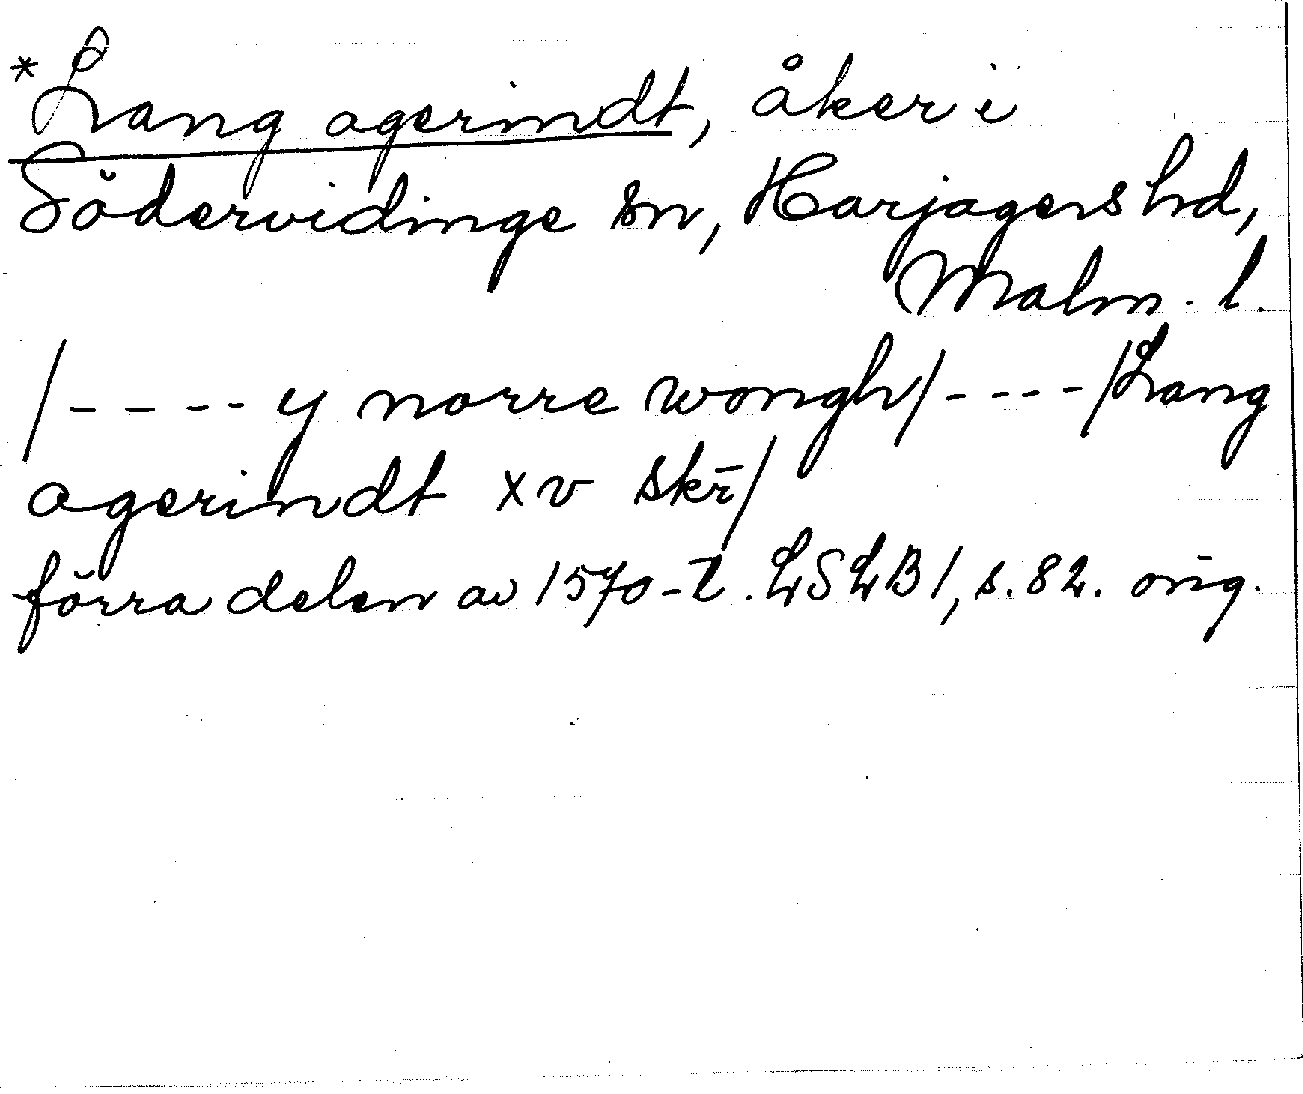 *Lang agerindt, åker i
Södervidinge sn, Harjagers hd,
Malm. l.
/---- y norre wongh/----/Lang
agerindt xv skr̄/
förra delen av 1570-t. LSLB1, s. 82. orig.